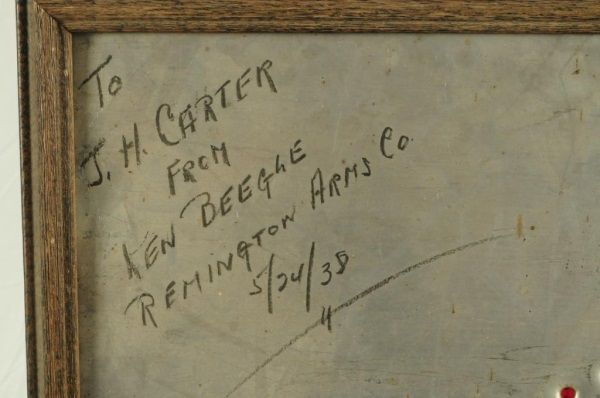 To
J. H. CARTER
FROM
KEN BEEGLE
REMINGTON ARMS CO
5/24/38